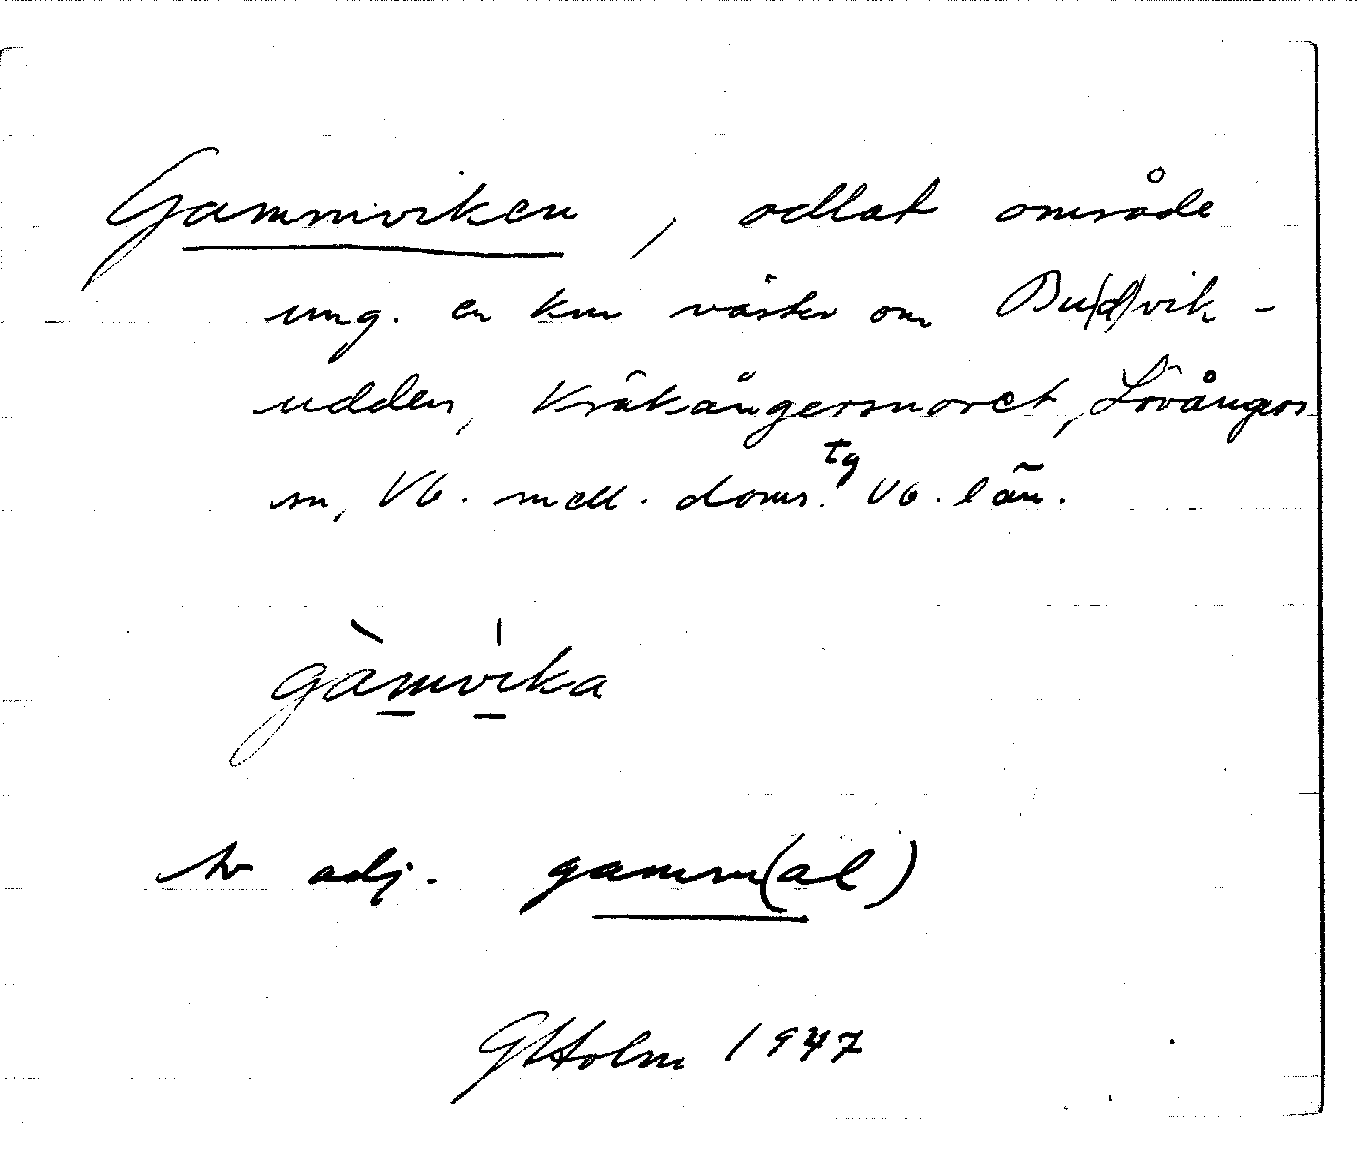 Gammviken, odlat område
ung. en km väster om Bu(d)vik-
udden, Kråkångersnoret, Lövångers
sn, Vb. mell. doms. tg Vb. län.
gàmvíka
adj. gamm(al)
GHolm 1947